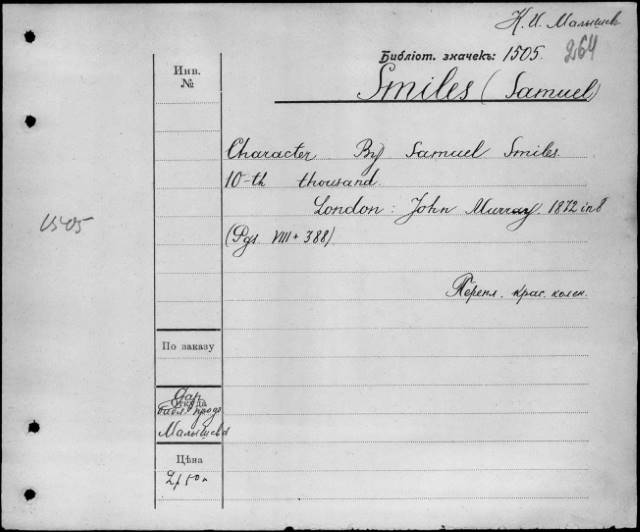 К. И. Малышев
264
Библіот. значекъ: 1505.
Smiles (Samuel)
Инв.
№
Character By Samuel Smiles.
10-th thousand.
London: John Murray. 1872 in 8
(Pgs VIII + 388)
1505
Перепл. крас. колен.
По заказу
Дар
Откуда
библ. проф.
Малышева
Цѣна
2 р 50 к